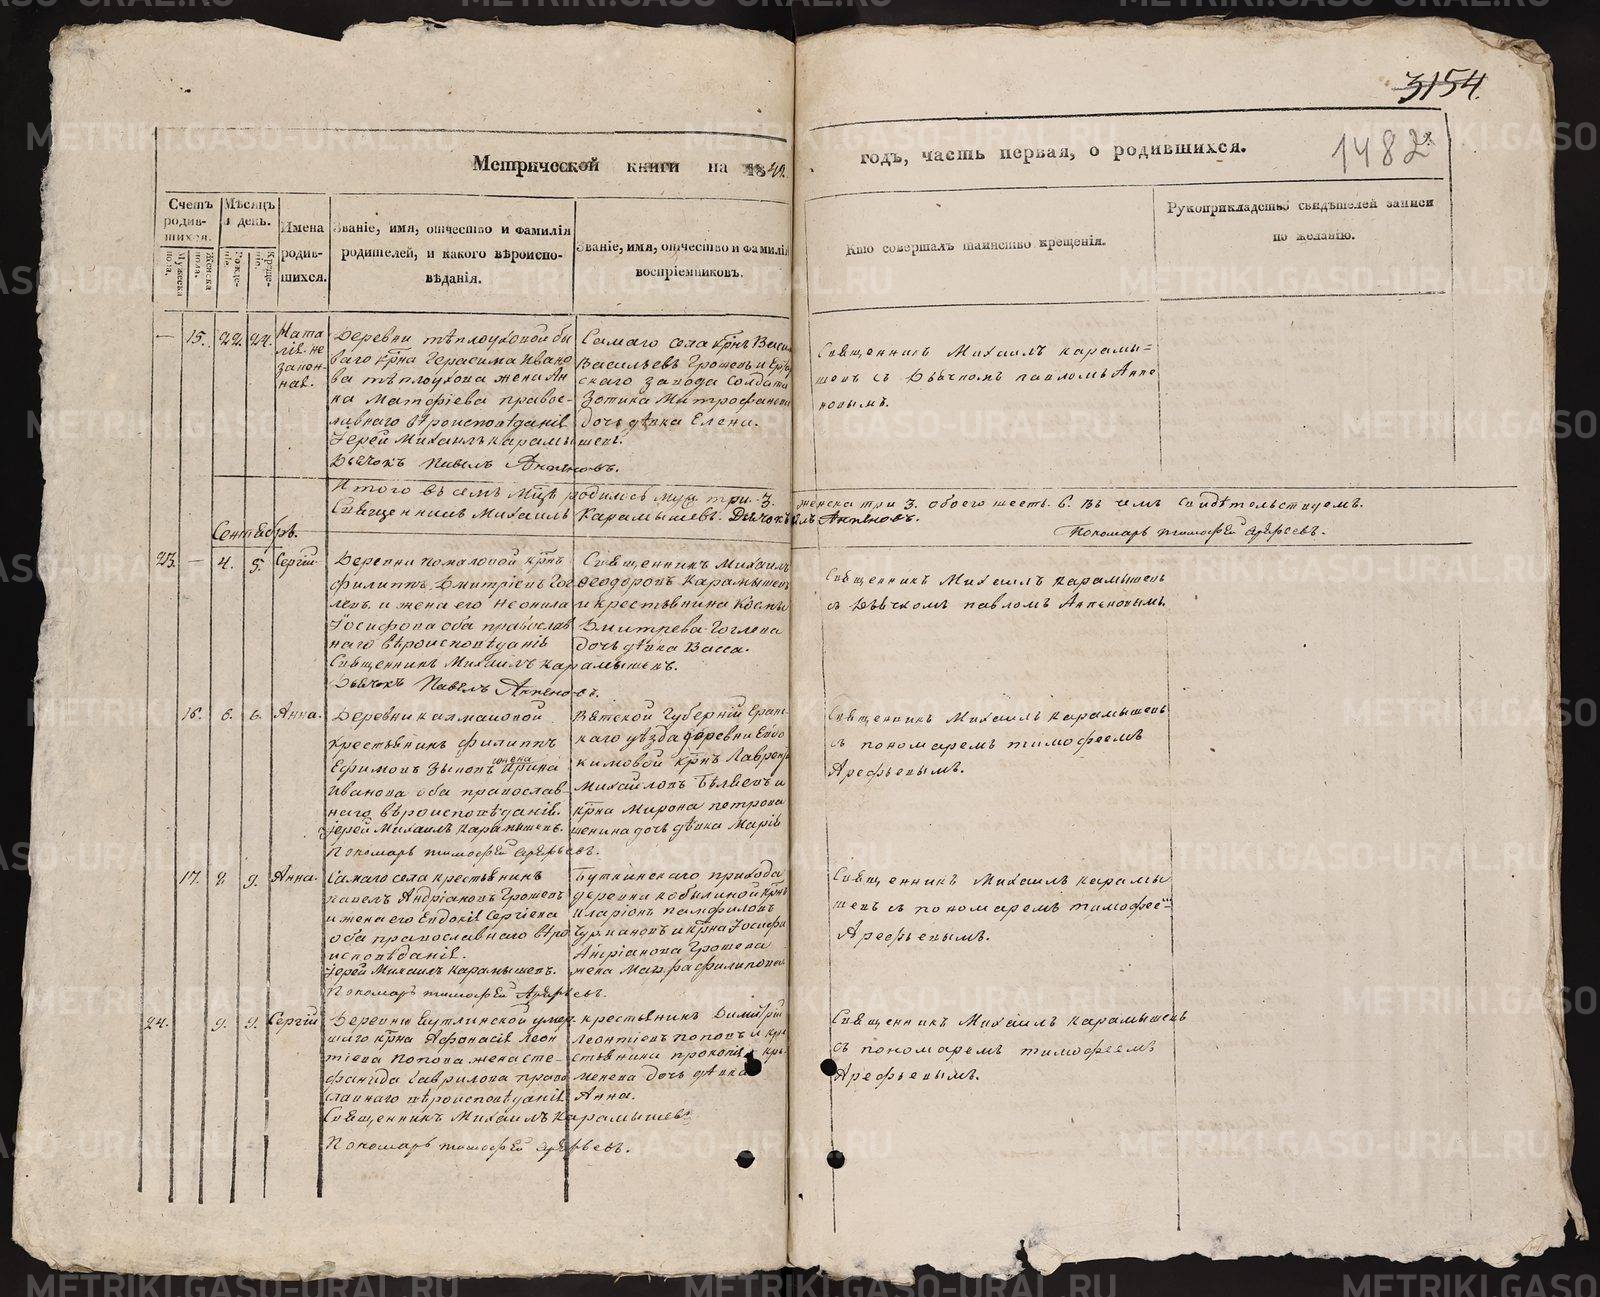 3154
1482
Метрической книги на 1842
годъ, часть первая, о родившихся.
Счетъ родившихся.
Мужеска пола.
Женска пола.
Мѣсяцъ и день.
Рожденіе.
Крещеніе.
Имена родившихся.
Званіе, имя, отчество и фамилія родителей, и какого вѣроисповѣданія.
Званіе, имя, отчество и фамилія воспріемниковъ.
Кто совершалъ таинство крещенія.
Рукоприкладство свидѣтелей записи по желанію.
— 15. 22. 24.
Ната
лія не
закон
ная.
Деревни тѣплоуховой бы
ваго крⷭ҇на Герасима Ивано
ва тѣплоухова жена Ан
на Матфіева правос
лавнаго вѣроисповѣданія
Іерей Михаилъ Карамышевъ.
Дьячокъ Павелъ Анпеновъ.
Самаго села крⷭ҇нъ Васи
Васильевъ Грошевъ и
скаго завода Солдата
Зотика Митрофанова
дочь дѣвка Елена.
Священникъ Михаилъ Карамы=
шевъ съ Дьячкомъ павломъ Анпе
новымъ.
Итого въ семъ мцѣ родилось муж три. 3. женска три 3. обоего шесть. 6. Въ чемъ свидѣтельствуемъ.
Священникъ Михаилъ Карамышевъ. Дьячокъ Анпеновъ.
Пономарь тимофей Арефьевъ.
Сентябрь.
23. — 4. 5. Сергій
филиппъ Дмитріевъ Гог
левъ и жена его Неонила
Іосифова оба православ
наго вѣроисповѣданія
Священникъ Михаилъ Карамышевъ.
Дьячокъ Павелъ Анпеновъ.
Священникъ Михаилъ
Феодоровъ Карамышевъ
и крестьянина Козмы
Дмитрева Гоглева
дочь дѣвка Васса.
Священникъ Михаилъ Карамышевъ
съ Дьячкомъ павломъ Анпеновымъ.
16. 6. 6. Анна.
Деревни калмаковой
крестьянинъ филиппъ
Ефимовъ Зыковъ жена Ирина
Иванова оба православ
наго вѣроисповѣданія.
Іерей Михаилъ Карамышевъ.
Пономарь тимофей Арефьевъ.
Вятской Губерніи
каго уѣзда деревни Евдо
кимовой крⷭ҇нъ Лаврен
Михайловъ Бѣляевъ и
крⷭ҇на Мирона петрова
дочь дѣвка Марія
Священникъ Михаилъ Карамышевъ
съ пономаремъ тимофеемъ
Арефьевымъ.
17. 8. 9. Анна.
Самаго села крестьянинъ
павелъ Андріановъ Грошевъ
и жена его Евдокія Сергіева
оба православнаго вѣро
исповѣданія.
Іерей Михаилъ Карамышевъ.
Пономарь тимофей Арефьевъ.
Буткинскаго прихода
деревни кобылиной крⷭ҇нъ
Иларіонъ памфиловъ
Чурмановъ и крⷭ҇на Іосифа
Андріанова Грошева
жена Марфа филипова
Священникъ Михаилъ Карамы
шевъ съ пономаремъ тимофее
Арефьевымъ.
24. 9. 9. Сергій
шаго крⷭ҇на Афонасія Леон
тіева Попова жена сте
фанида Гаврилова право
славнаго вѣроисповѣданія
Священникъ Михаилъ Карамышевъ
Пономарь тимофей Арефьевъ.
крестьянинъ Димитрій
Леонтіевъ поповъ и кре
стьянина прокопія
дочь дѣвка
Анна.
Священникъ Михаилъ Карамышевъ
съ пономаремъ тимофеемъ
Арефьевымъ.
METRIKI.GASO-URAL.RU